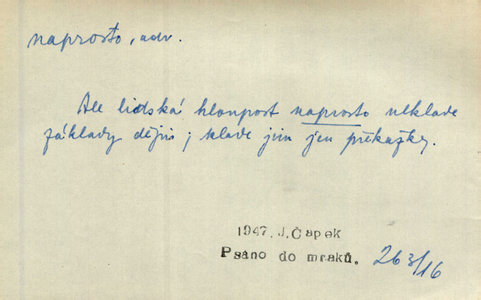 naprosto, adv.
Ale lidská hloupost naprosto neklade
základy dějin; klade jim jen překážky.
1947, J.Čapek
Psáno do mraků.
263/16